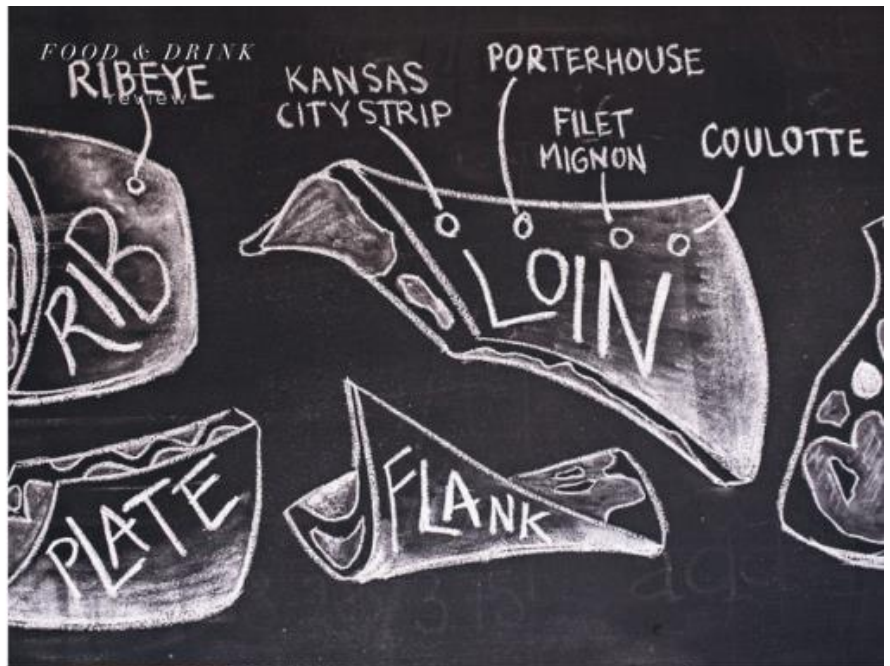 FOOD & DRINK
RIBEYE
review
KANSAS
CITY STRIP
PORTERHOUSE
FILET
MIGNON
COULOTTE
RIB
LOIN
PLATE
FLANK